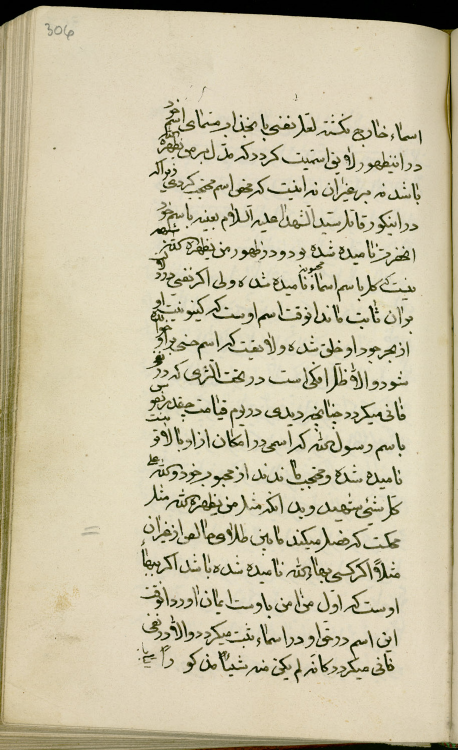 306
اسماء خارج نگشته لعل نفسی بانجذاب منتهای اسم خود
در آن ظهور لایق اسمیت گردد که مدل بر من یظهره
باشد نه بر غیر آن نه اینست که محض اسم محتجب گردی زیرا که
در این کور قاتل سید الشهداء علیه السلام بعینه باسم خود
آنحضرت نامیده شده بود و در ظهور من یظهره الله شبهه
نیست که کل باسم اسماء محبوبه نامیده شده ولی اگر نفسی در
بر آن ثابت ماند آنوقت اسم اوست که کینونیت او
از بحر جود او خلق شده و لایقست که اسم حسنی بر او
شود و الا ظل افکی است در تحت الثری که
فانی میگردد چنانچه دیدی در یوم قیامت چقدر نفوس
باسم رسول الله که اسمی در امکان از او بالاتر نیست
نامیده شده و محتجب ماندند از محبوب خود والله علی
کل شیئ شهید و بدانکه مثل من یظهره الله مثل
محکست که فصل میکند مابین طلای خالص از غیر آن
مثلا اگر کسی بهاء الله نامیده شده باشد اگر ببهاء
اوست که اول من آمن باوست ایمان آورد آنوقت
این اسم در حق او در اسماء ثبت میگردد و الا در نفی
فانی میگردد کانه لم یکن من شیئا مذکورا